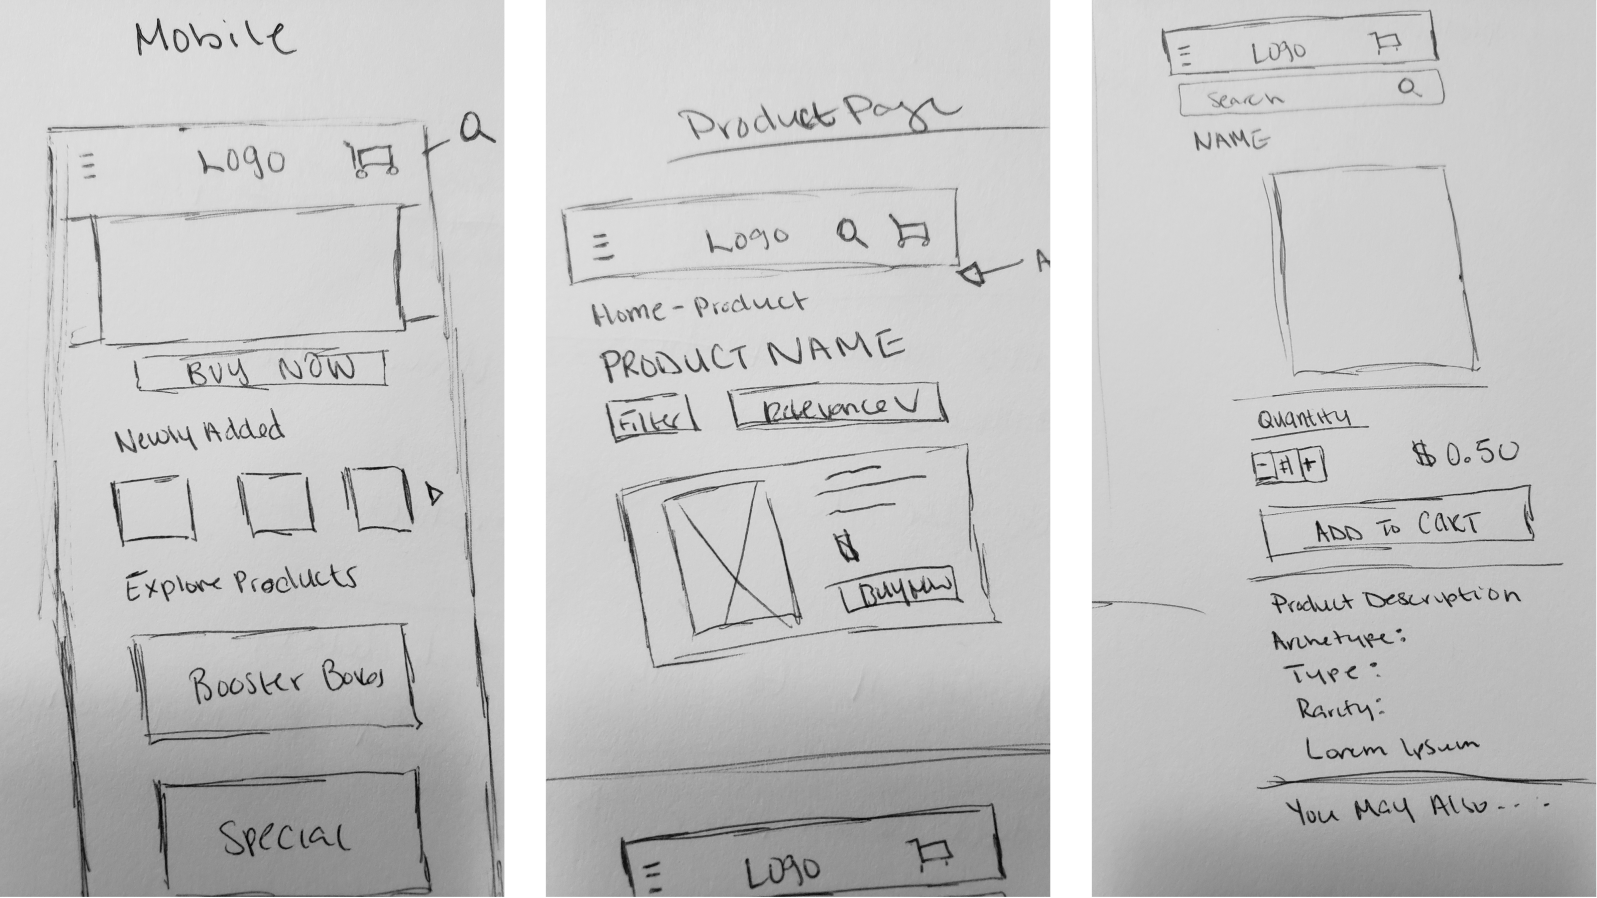 Mobile
Logo
BUY NOW
Newly Added
Explore Products
Booster Boxes
Special
Product Page
Logo
A
Home - Product
PRODUCT NAME
Filter
Relevance V
$
Buy Now
Logo
Logo
Search
NAME
Quantity
- # +
$ 0.50
ADD TO CART
Product Description
Archetype:
Type:
Rarity:
Lorem Ipsum
You May Also....